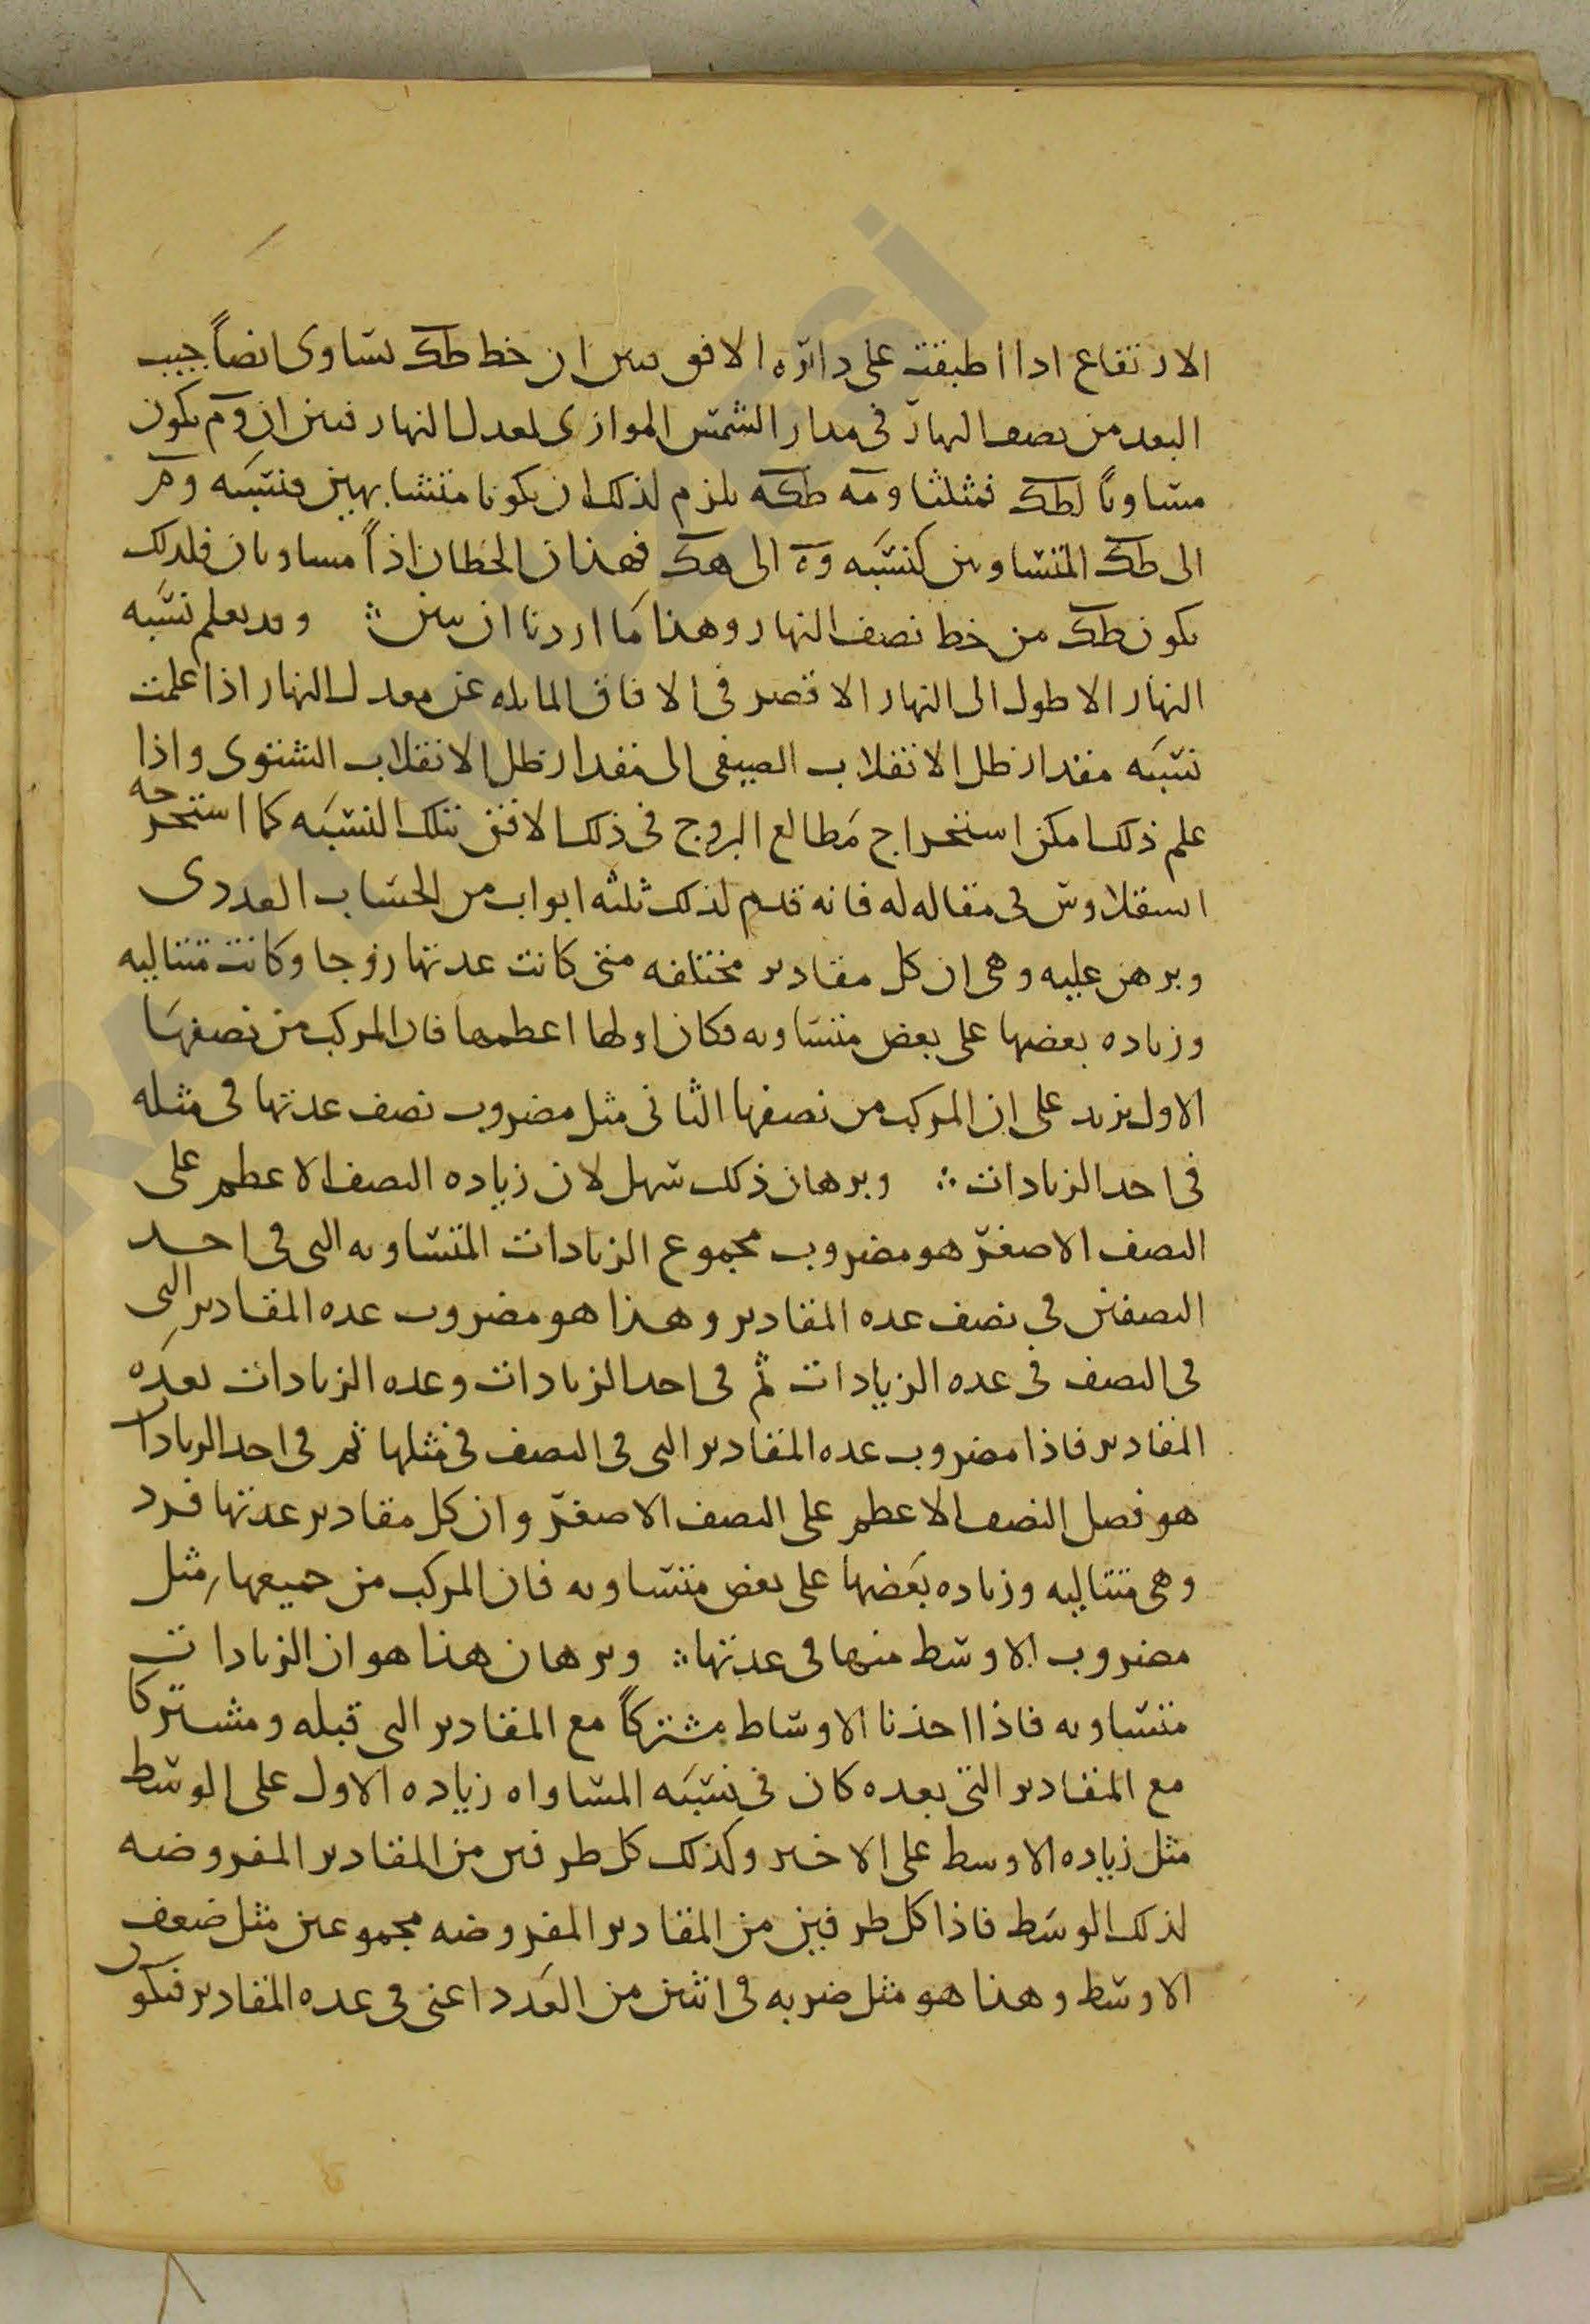 الارتفاع اذا اطبقت على دائره الافق تبين ان خط طك تساوى ايضاً جيب
البعد من نصف النهار فى مدار الشمس الموازى لمعدل النهار فتبين ان وم يكون
مساوياً لطك فمثلثا ومه طكه يلزم لذلك ان يكونا متشابهين فنسبه وم
الى طك المتساويين كنسبه وه الى هك فهذان الخطان اذاً مساويان فلذلك
يكون طك من خط نصف النهار وهذا ما اردنا ان نبين ؞ وقد يعلم نسبه
النهار الاطول الى النهار الاقصر فى الافاق المايله عن معدل النهار اذا علمت
نسبه مقدار ظل الانقلاب الصيفى الى مقدار ظل الانقلاب الشتوى واذا
علم ذلك امكن استخراج مطالع البروج فى ذلك الافق بتلك النسبه كما استخرجه
اسقلاوس فى مقاله له فانه قدم لذلك ثلثه ابواب من الحساب العددى
وبرهن عليه وهى ان كل مقادير مختلفه متى كانت عدتها زوجا وكانت متتاليه
وزياده بعضها على بعض متساويه فكان اولها اعظمها فان المركب من نصفها
الاول يزيد على ان المركب من نصفها الثانى مثل مضروب نصف عدتها فى مثله
فى احد الزيادات ؞ وبرهان ذلك سهل لان زياده النصف الاعظم على
النصف الاصغر هو مضروب مجموع الزيادات المتساويه التى فى احد
النصفين فى نصف عده المقادير وهذا هو مضروب عده المقادير التى
فى النصف فى عده الزيادات ثم فى احد الزيادات وعده الزيادات بعده
المقادير فاذا مضروب عده المقادير التى فى النصف فى مثلها ثم فى احد الزيادات
هو فضل النصف الاعظم على النصف الاصغر وان كل مقادير عدتها فرد
وهى متتاليه وزياده بعضها على بعض متساويه فان المركب من جميعها مثل
مضروب الاوسط منها فى عدتها ؞ وبرهان هذا هو ان الزيادات
متساويه فاذا اخذنا الاوساط مشتركاً مع المقادير التى قبله ومشتركا
مع المقادير التى بعده كان فى نسبه المساواه زياده الاول على الوسط
مثل زياده الاوسط على الاخير وكذلك كل طرفين من المقادير المفروضه
لذلك الوسط فاذا كل طرفين من المقادير المفروضه مجموعين مثل ضعف
الاوسط وهذا هو مثل ضربه فى اثنين من العدد اعنى فى عده المقادير فيكون